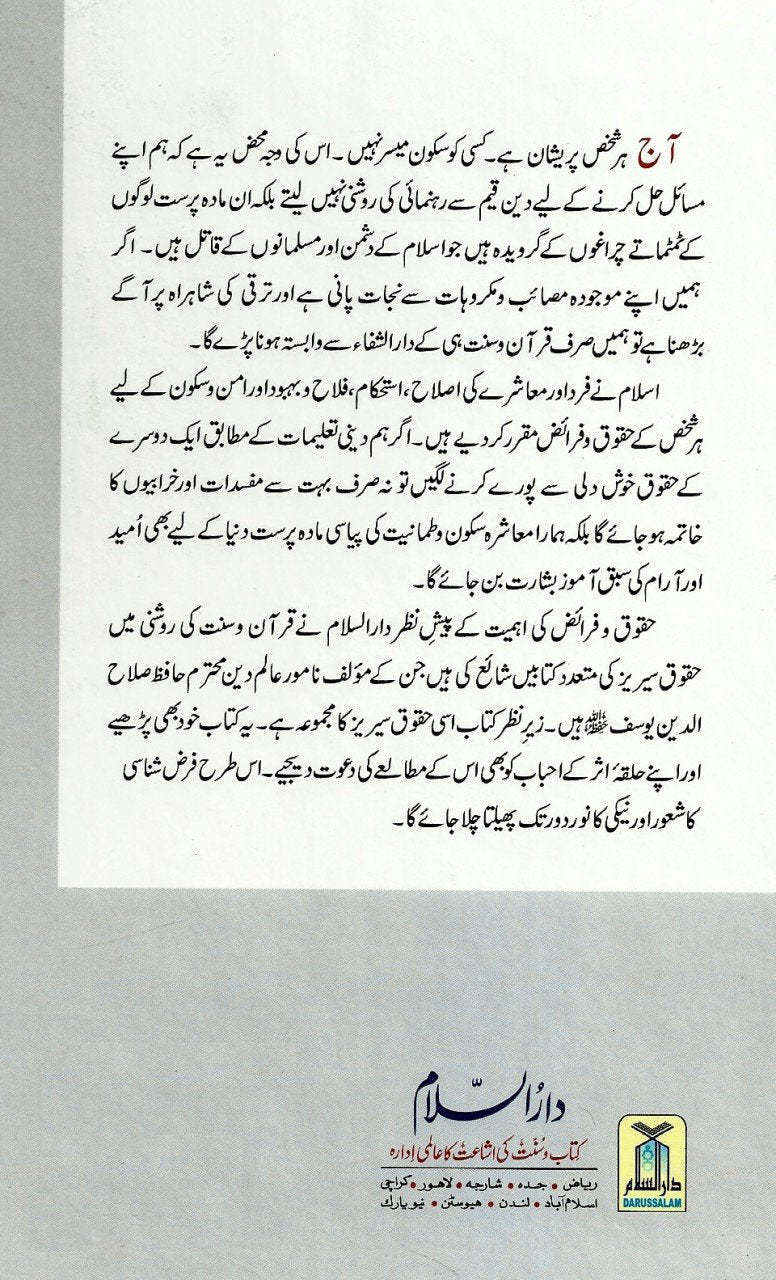 آج ہر شخص پریشان ہے۔ کسی کو سکون میسر نہیں ۔ اس کی وجہ محض یہ ہے کہ ہم اپنے
مسائل حل کرنے کے لیے دین قیم سے رہنمائی کی روشنی نہیں لیتے بلکہ ان مادہ پرست لوگوں
کے ٹمٹماتے چراغوں کے گرویدہ ہیں جو اسلام کے دشمن اور مسلمانوں کے قاتل ہیں ۔ اگر
ہمیں اپنے موجودہ مصائب و مکروہات سے نجات پانی ہے اور ترقی کی شاہراہ پر آگے
بڑھنا ہے تو ہمیں صرف قرآن وسنت ہی کے دارالشفاء سے وابستہ ہونا پڑے گا۔
اسلام نے فرد اور معاشرے کی اصلاح ، استحکام، فلاح و بہبود اور امن وسکون کے لیے
ہر شخص کے حقوق و فرائض مقرر کر دیے ہیں ۔ اگر ہم دینی تعلیمات کے مطابق ایک دوسرے
کے حقوق خوش دلی سے پورے کرنے لگیں تو نہ صرف بہت سے مفسدات اور خرابیوں کا
خاتمہ ہو جائے گا بلکہ ہمارا معاشرہ سکون وطمانیت کی پیاسی مادہ پرست دنیا کے لیے بھی اُمید
اور آرام کی سبق آموز بشارت بن جائے گا۔
حقوق و فرائض کی اہمیت کے پیشِ نظر دارالسلام نے قرآن وسنت کی روشنی میں
حقوق سیریز کی متعدد کتابیں شائع کی ہیں جن کے مؤلف نامور عالم دین محترم حافظ صلاح
الدین یوسف حفظہ اللہ ہیں ۔ زیرِ نظر کتاب اسی حقوق سیریز کا مجموعہ ہے۔ یہ کتاب خود بھی پڑھیے
اور اپنے حلقۂ اثر کے احباب کو بھی اس کے مطالعے کی دعوت دیجیے۔ اس طرح فرض شناسی
کا شعور اور نیکی کا نور دور تک پھیلتا چلا جائے گا ۔
دارُالسّلام
کِتاب و سُنّت کی اشاعت کا عالمی اِدارہ
ریاض • جدہ • شارجہ • لاهور • کراچی
اسلام آباد • لندن • هیوسٹن • نیویارک
دارالسلام
DARUSSALAM